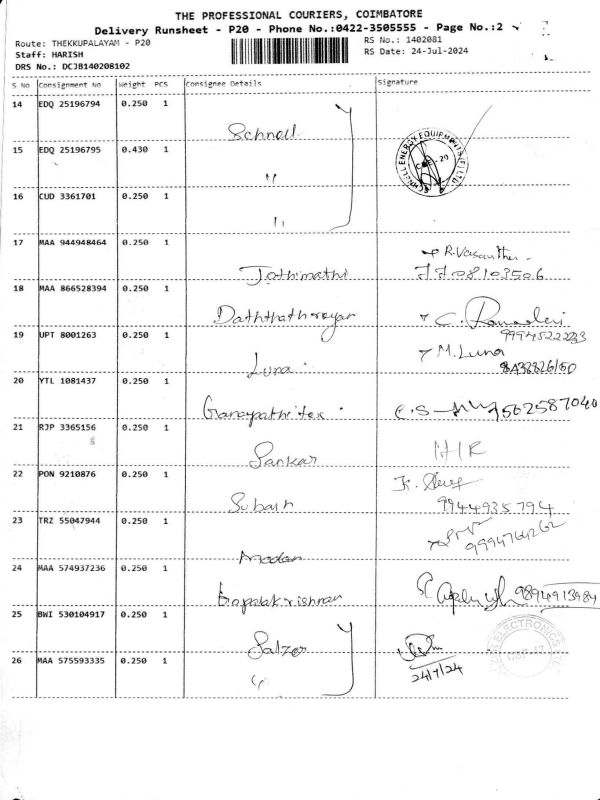 THE PROFESSIONAL COURIERS, COIMBATORE
Delivery Runsheet - P20 - Phone No.:0422-3505555 - Page No.:2
Route: THEKKUPALAYAM - P20
RS No.: 1402081
Staff: HARISH
RS Date: 24-Jul-2024
DRS No.: DCJB140208102
S No Consignment No Weight PCS Consignee Details Signature
14 EDQ 25196794 0.250 1
Schnell
15 EDQ 25196795 0.430 1
"
16 CUD 3361701 0.250 1
"
17 MAA 944948464 0.250 1
R. Vasantha
Jothimathi
18 MAA 866528394 0.250 1
Daththathreyar
19 UPT 8001263 0.250 1
9994522233
M. Luna
Luna
20 YTL 1081437 0.250 1
Ganapathi tex
21 RJP 3365156 0.250 1
Sankar
22 PON 9210876 0.250 1
Subash
9944935794
23 TRZ 55047944 0.250 1
Madan
24 MAA 574937236 0.250 1
Gopalakrishnan
9894913984
25 BWI 530104917 0.250 1
Salzer
26 MAA 575593335 0.250 1
"
24/7/24